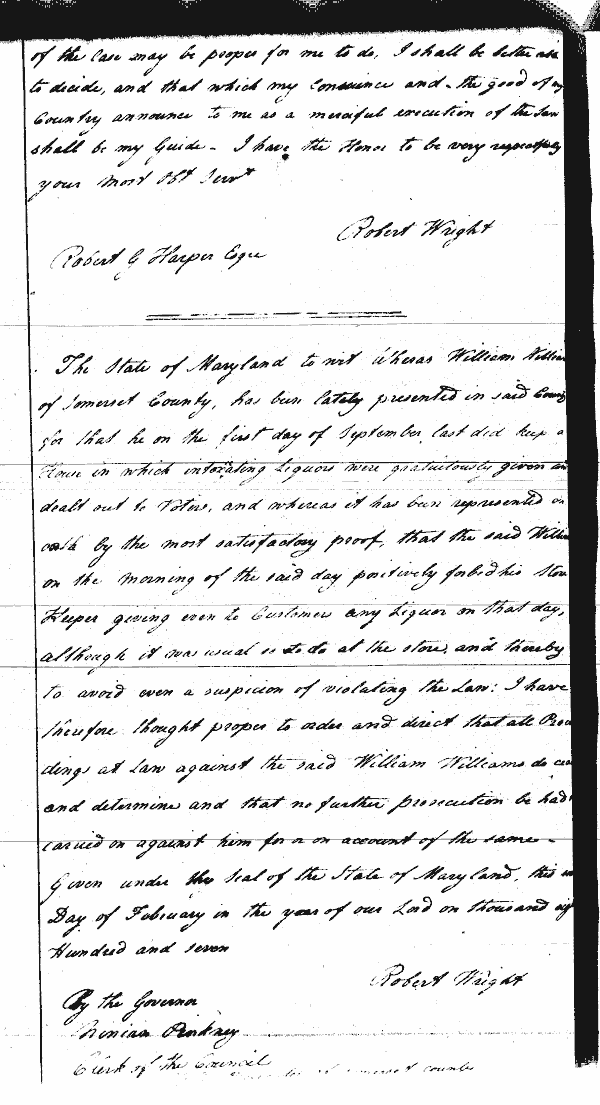 of the Case may be proper for me to do, I shall be better
to decide, and that which my Concience and the good of my
Country announce to me as a merciful execution of the Law
shall be my Guide - I have the Honor to be very respectfully
your most Obt Servt
Robert Wright
Robert G Harper Esqr
The State of Maryland to wit Wheras William
of Somerset County, has been lately presented in said
for that he on the first day of September last did keep a
House in which intoxicating Liquors were gratuitously given
dealt out to Voters, and whereas it has been represented
oath by the most satisfactory proof, that the said
on the morning of the said day positively forbid his
Keeper giving even to Customers any Liquor on that day,
although it was usual so to do at the store, and thereby
to avoid even a suspicion of violating the Law: I have
therefore thought proper to order and direct that all Procee
dings at Law against the said William Williams do
and determine and that no further prosecution be had
carried on against him for or on account of the same -
Given under the Seal of the State of Maryland, this
Day of February in the year of our Lord on thousand
Hundred and seven
Robert Wright
By the Governor
Ninian Pinkney
Clerk of the Council